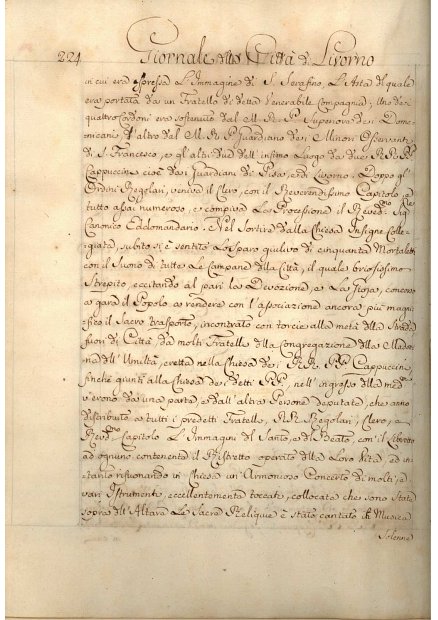 224
Giornale della Città di Livorno
in cui era espressa L'Immagine di S. Serafino, L'Asta di quale
era portata da un Fratello di detta Venerabile Compagnia; Uno dei
quattro Cordoni era sostenuto dal M. R. P. Superiore dei Dome-
nicani, l'altro dal M. R. P. Guardiano dei Minori Osservanti
di S. Francesco, e gl'altri due dell'infimo Luogo da due R.R. P.P.
Cappuccini, cioè dai Guardiani di Pisa, e di Livorno. Doppo gl'
Ordini Regolari, veniva il Clero, con il Reverendissimo Capitolo, e
tutto assai numeroso, e compiva La Processione il Revd.mo Sig.
Canonico Eddomandario. Nel Sortire dalla Chiesa Insigne Colle-
giata, subito si è sentito Lo Sparo giulivo di cinquanta Mortaletti
con il Suono di tutte Le Campane della Città, il quale briosissimo
Strepito, eccitando al pari La Devozione, e La Gioja, concorse
a gara il Popolo a rendere con l'associazione ancora più magni-
fico il Sacro trasporto, incontrato con torcie alla metà della Strada
fuori di Città, da molti Fratelli della Congregazione della Mado-
na dell'Umiltà, eretta nella Chiesa dei R.R. P.P. Cappuccini,
finchè giunti alla Chiesa de' detti P.P., nell'ingresso della med.
v'erono da una parte, e dall'altra Persone deputate, che anno
distribuito a tutti i predetti Fratelli, R.R. Regolari, Clero, e
Revd.mo Capitolo L'Immagini del Santo, e del Beato, con il Libretto
ad ognuno contenente il Ristretto operato della Loro Vita, ed in-
tanto risuonando in Chiesa un'Armonioso Concerto di molti, e
vari Istrumenti, eccellentemente toccati, collocate che sono state
sopra dell'Altare Le Sacre Reliquie è stato cantato in Musica
Solenne